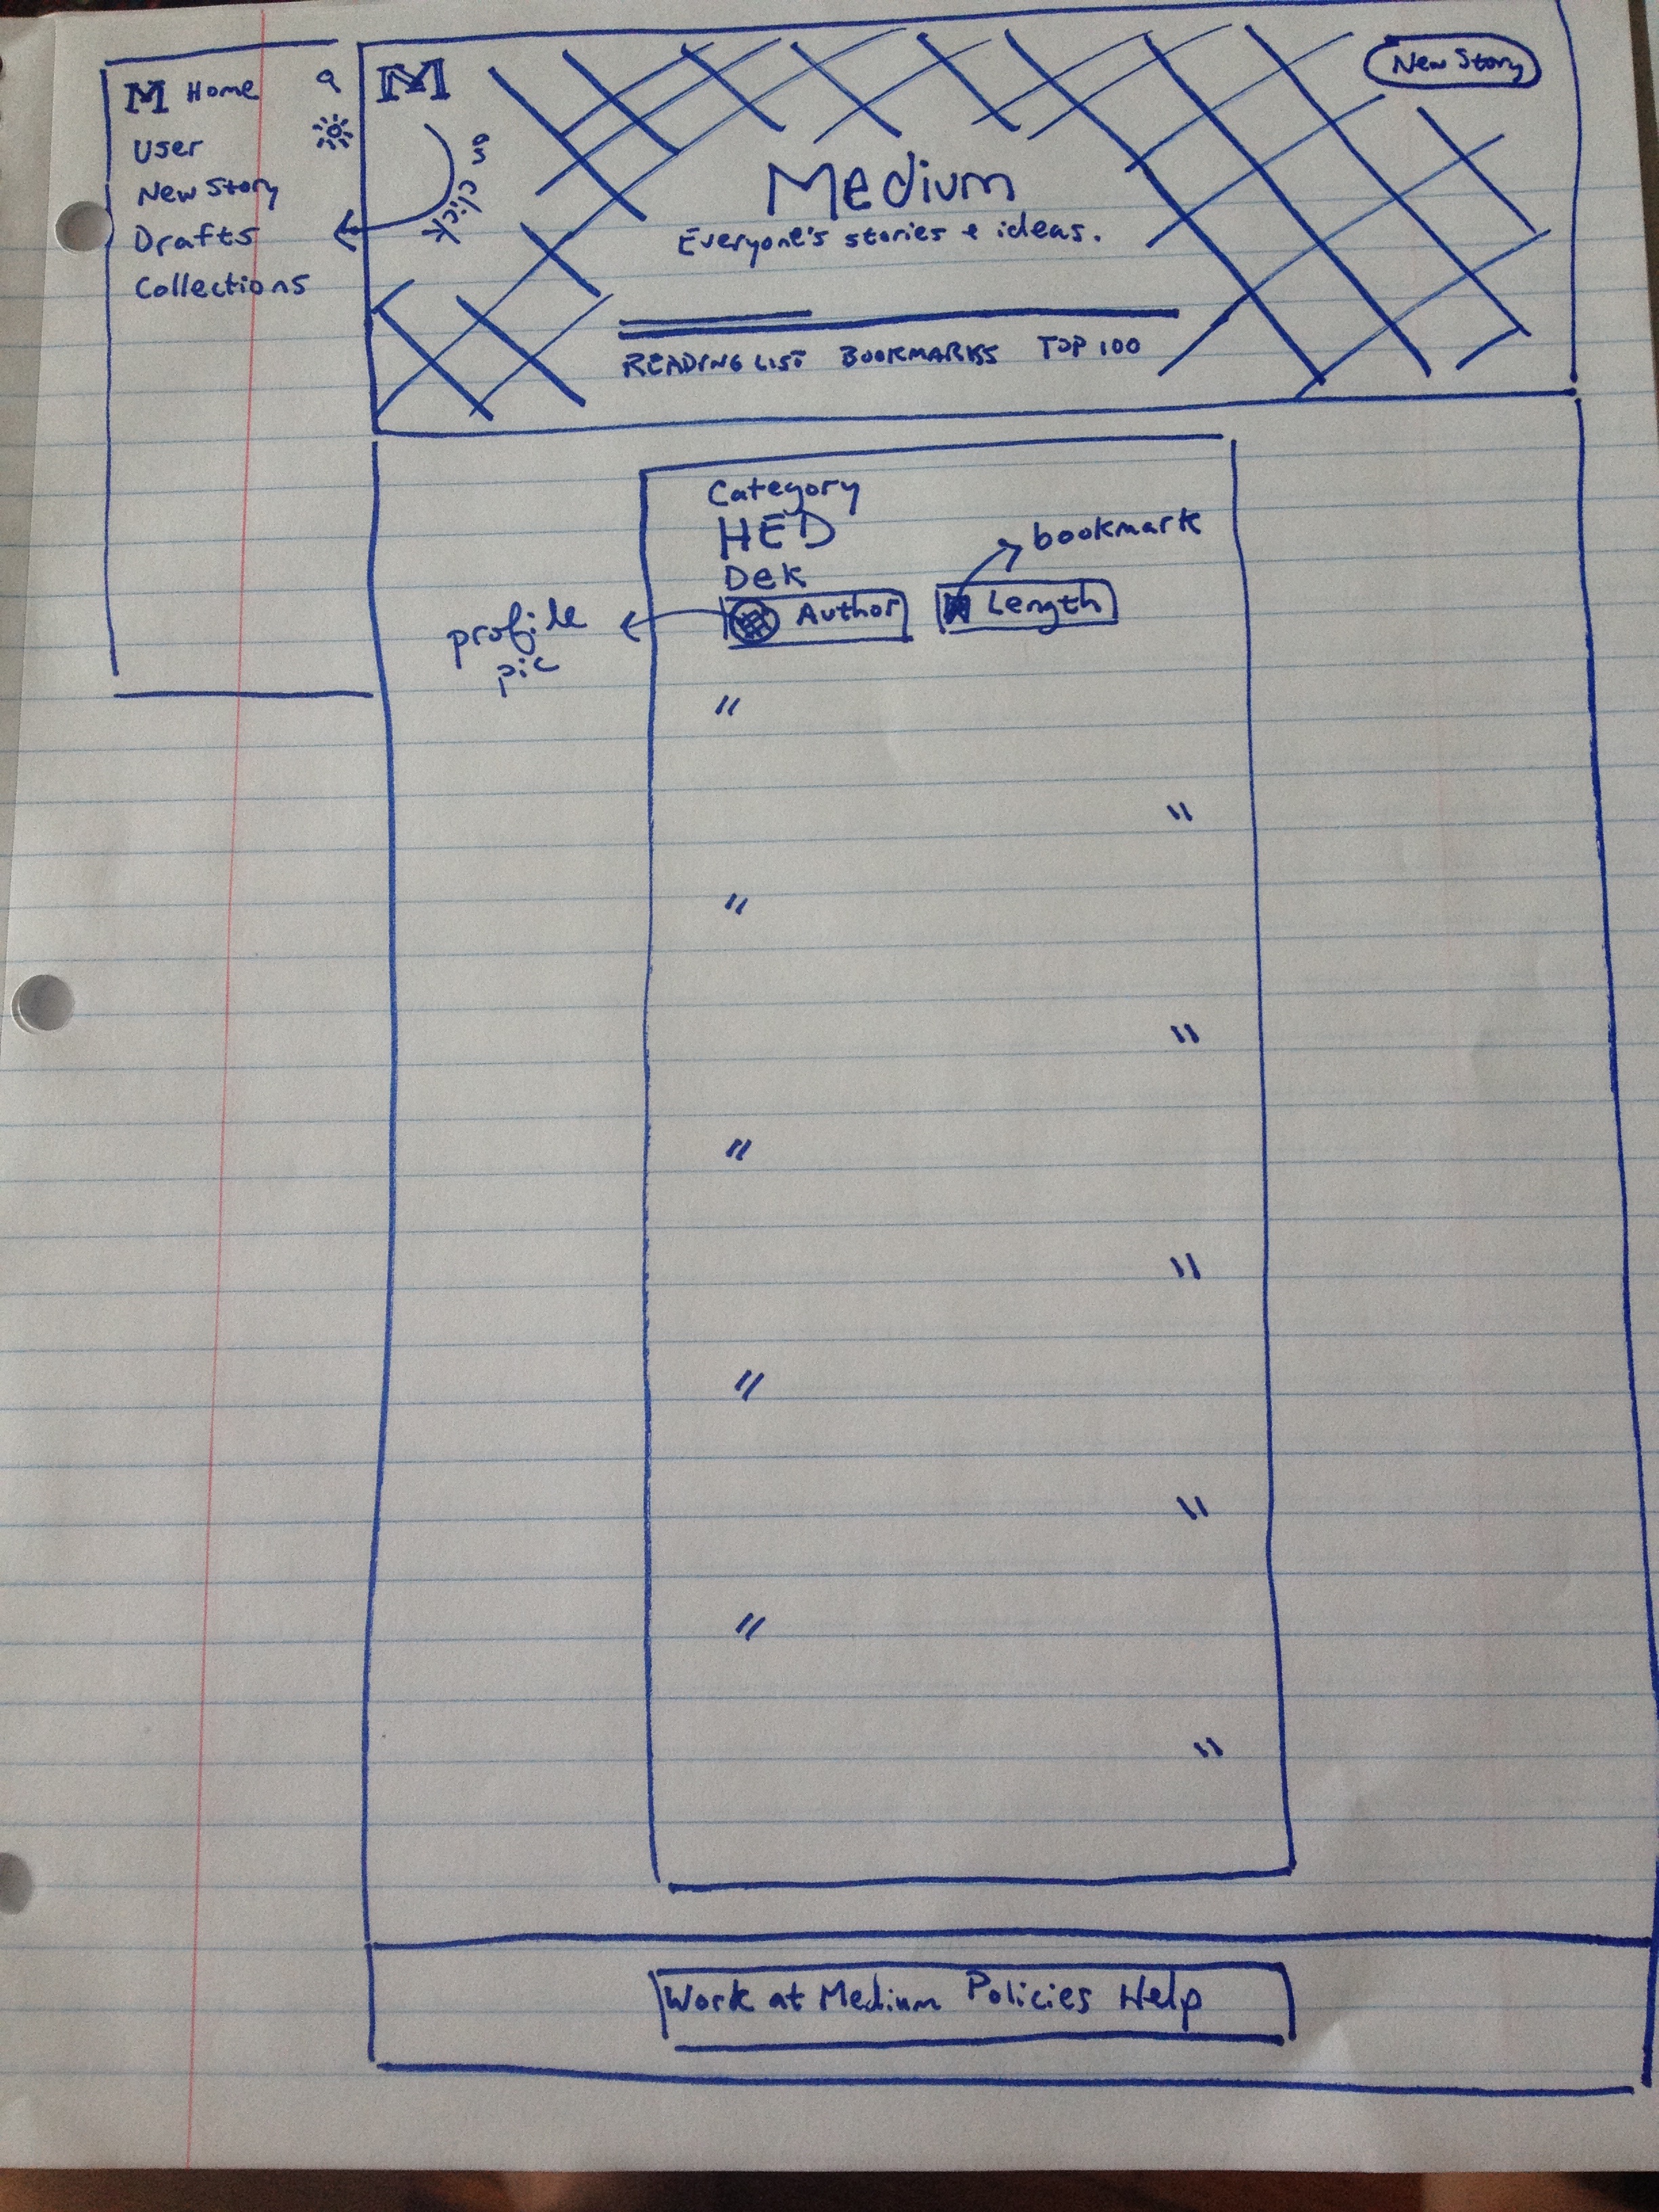 M Home
User
New Story
Drafts
Collections
M
on click
New Story
Medium
Everyone's stories + ideas.
READING LIST BOOKMARKS TOP 100
Category
HED
Dek
Author Length
bookmark
profile
pic
"
"
"
"
"
"
"
"
"
"
Work at Medium Policies Help